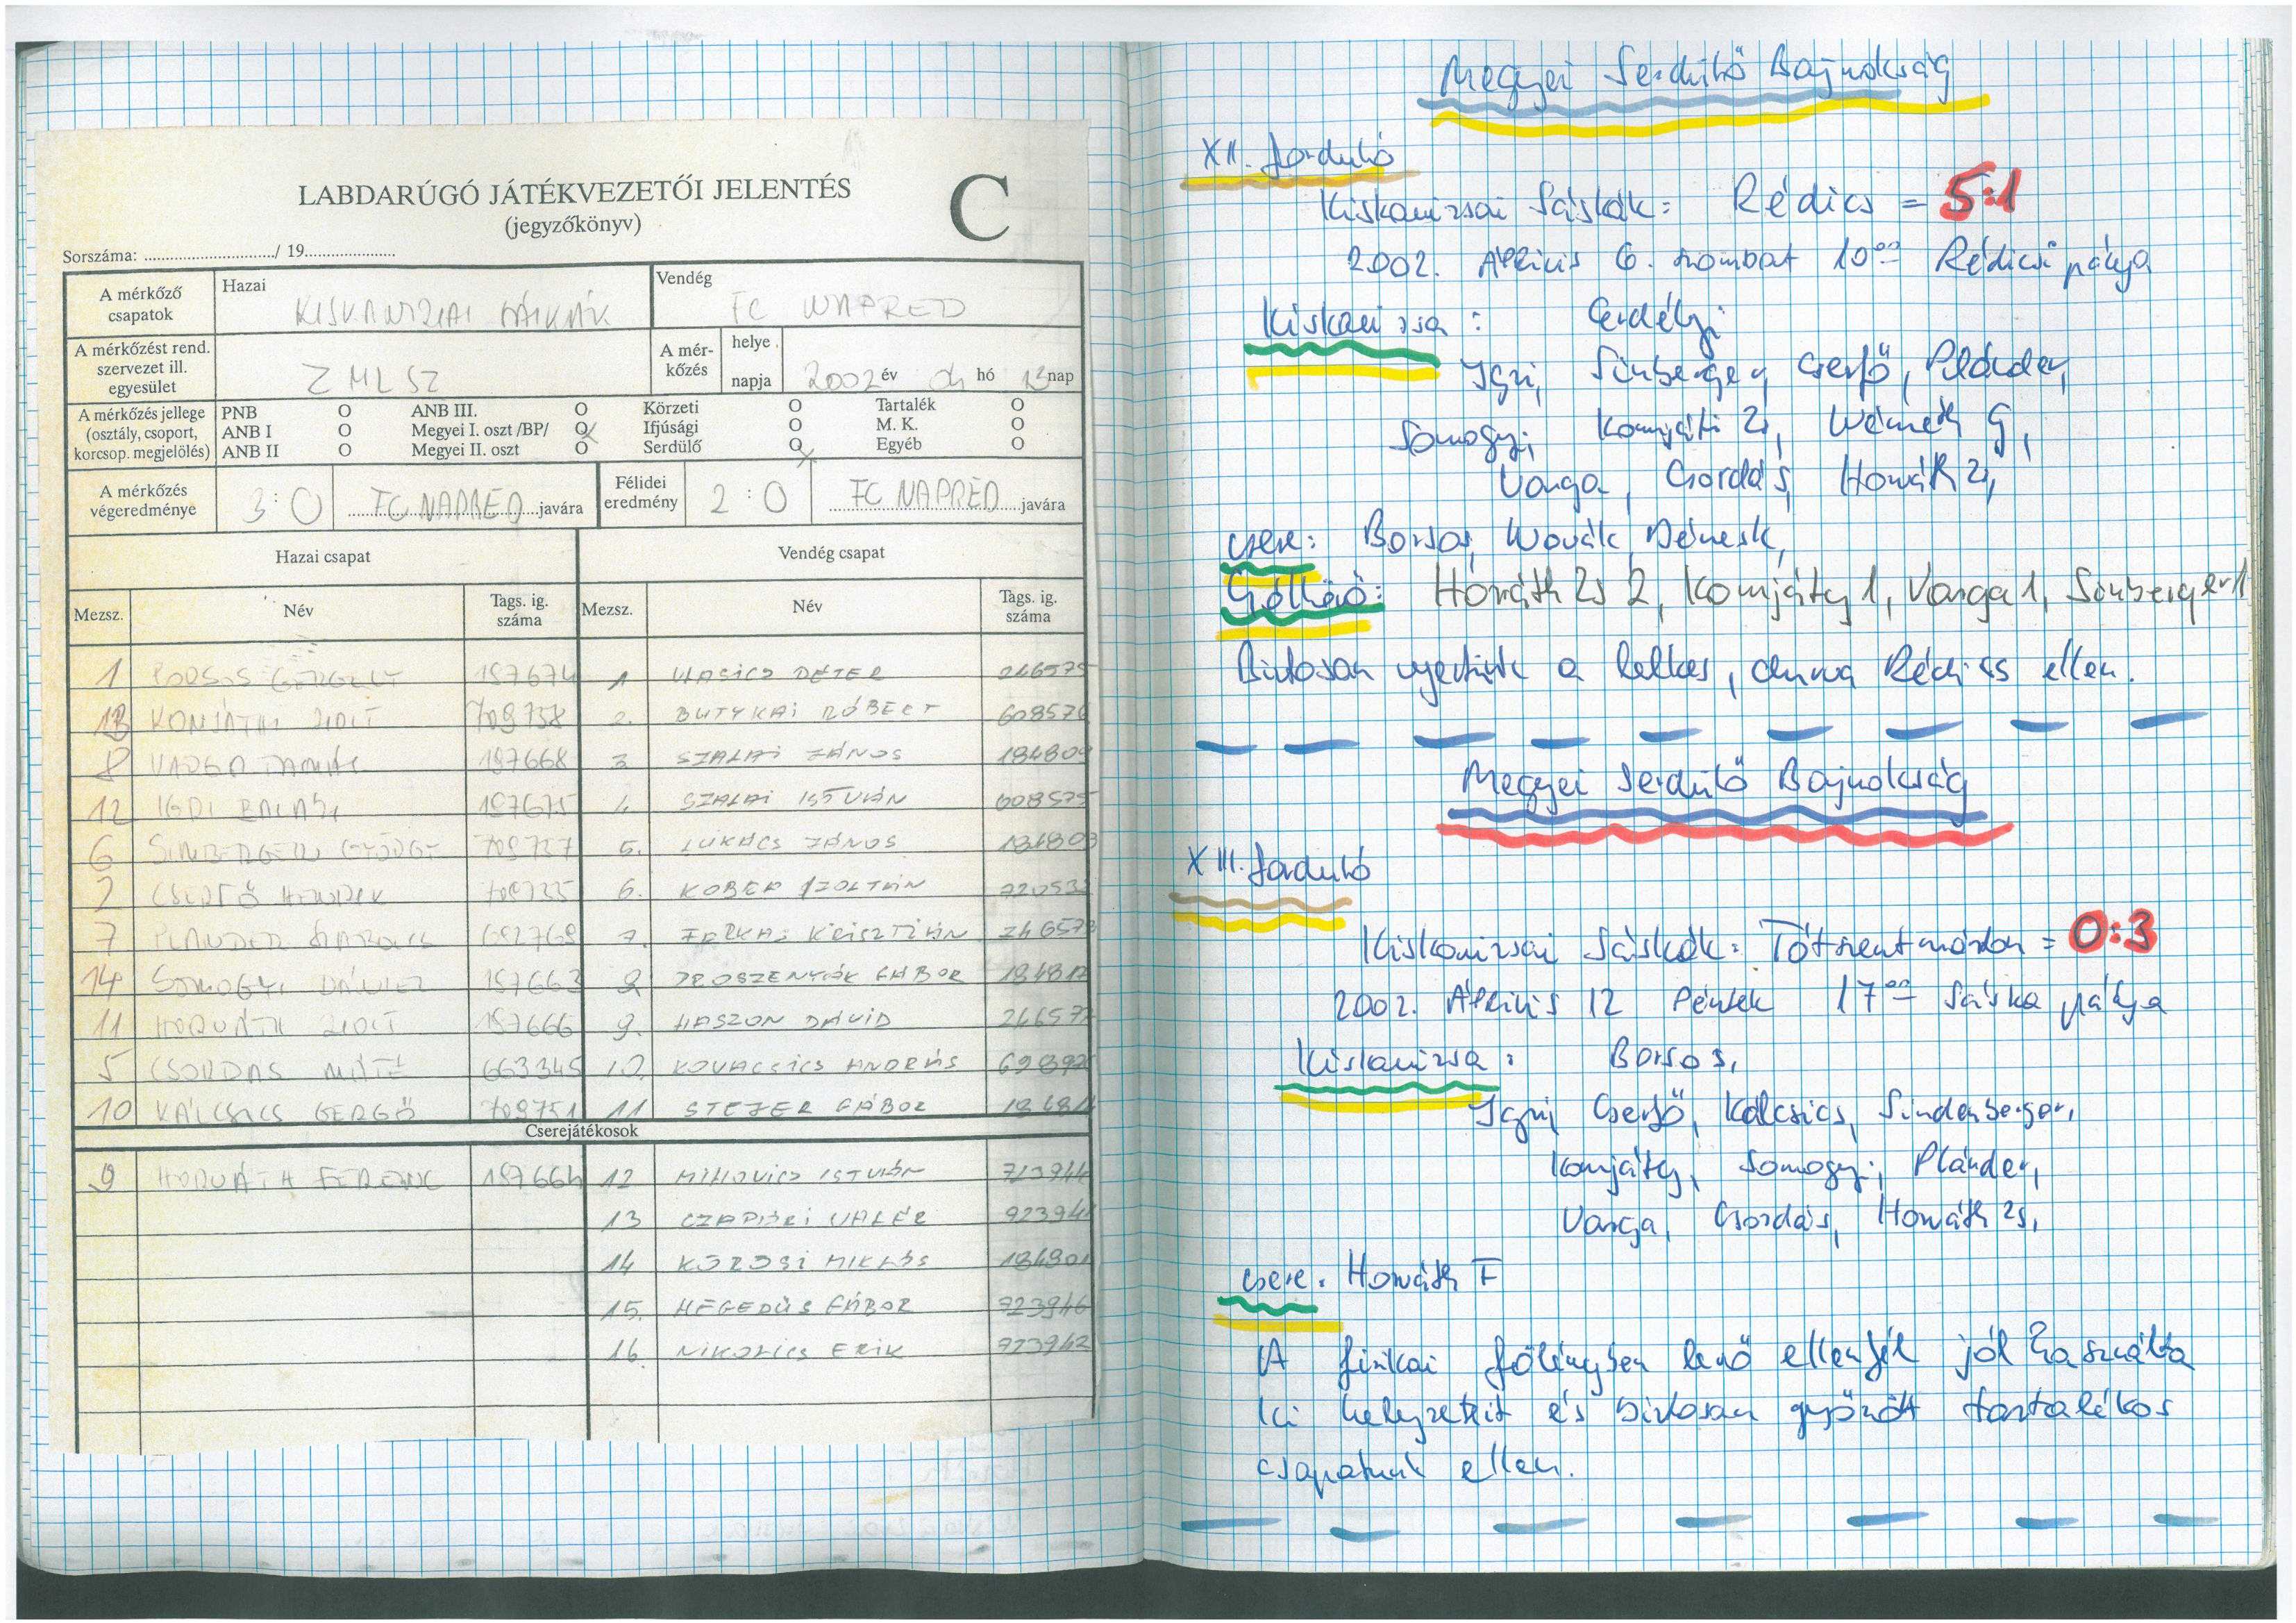 LABDARÚGÓ JÁTÉKVEZETŐI JELENTÉS
(jegyzőkönyv)
C
Sorszáma: ............................../ 19.....................
A mérkőző csapatok
Hazai
KISKANIZSAI SÁSKÁK
Vendég
FC NAPRED
A mérkőzést rend. szervezet ill. egyesület
ZMLSZ
A mérkőzés
helye
napja 2002 év 04 hó 13 nap
A mérkőzés jellege (osztály, csoport, korcsop. megjelölés)
PNB O ANB III. O Körzeti O Tartalék O
ANB I O Megyei I. oszt /BP/ O Ifjúsági O M. K. O
ANB II O Megyei II. oszt O Serdülő O Egyéb O
A mérkőzés végeredménye 3:0 FC NAPRED javára
Félidei eredmény 2:0 FC NAPRED javára
Hazai csapat Vendég csapat
Mezsz. Név Tags. ig. száma Mezsz. Név Tags. ig. száma
1 BORSOS GERGELY 197674 1 VLASICS PÉTER 246575
13 KOMJÁTHI ZSOLT 709758 2. BUTYKAI RÓBERT
8 VARGA TAMÁS 197668 3 SZALAI JÁNOS 184809
12 IGRI BALÁZS 197675 4. SZALAI ISTVÁN 608575
6 SINBERGER GYÖRGY 709757 5. LUKÁCS JÁNOS 184803
2 CSERFŐ HENRIK 709755 6. KOBER ZOLTÁN
7 PLANDER SZABOLCS 692769 7. FARKAS KRISZTIÁN
14 SOMOGYI DÁNIEL 197663 8. PROSZENYÁK GÁBOR
11 HORVÁTH ZSOLT 197666 9. HASZON DÁVID
5 CSORDÁS MÁTÉ 663345 10. KOVACSICS ANDRÁS
10 KÁLCSICS GERGŐ 709751 11 STEFER GÁBOR
Cserejátékosok
9 HORVÁTH FERENC 197664 12 MIHOVICS ISTVÁN
13 CZAPÁRI VALÉR
14 KŐRÖSI MIKLÓS 184801
15. HEGEDŰS GÁBOR 723946
16. NIKOLICS ERIK 723942
Megyei Serdülő Bajnokság
XII. forduló
Kiskanizsai Sáskák = Rédics = 5:1
2002. Április 6. szombat 10⁰⁰ Rédicsi pálya
Kiskanizsa: Gerdély,
Igri, Sinberger, Cserfő, Plánder,
Somogyi, Komjáti Zs, Németh G,
Varga, Csordás, Horváth Zs,
csere: Borsos, Novák, Dénesk,
Góllövő: Horváth Zs 2, Komjáty 1, Varga 1, Sinberger 1
Biztosan nyertünk a lelkes, durva Rédics ellen.
Megyei Serdülő Bajnokság
XIII. forduló
Kiskanizsai Sáskák = Tótszentmárton = 0:3
2002. Április 12 Péntek 17⁰⁰ Sáska pálya
Kiskanizsa: Borsos,
Igri, Cserfő, Kálcsics, Sindenberger,
Komjáty, Somogyi, Plánder,
Varga, Csordás, Horváth Zs,
csere. Horváth F
A fizikai fölényben levő ellenfél jól használta
ki helyzeteit és biztosan győzött tartalékos
csapatunk ellen.